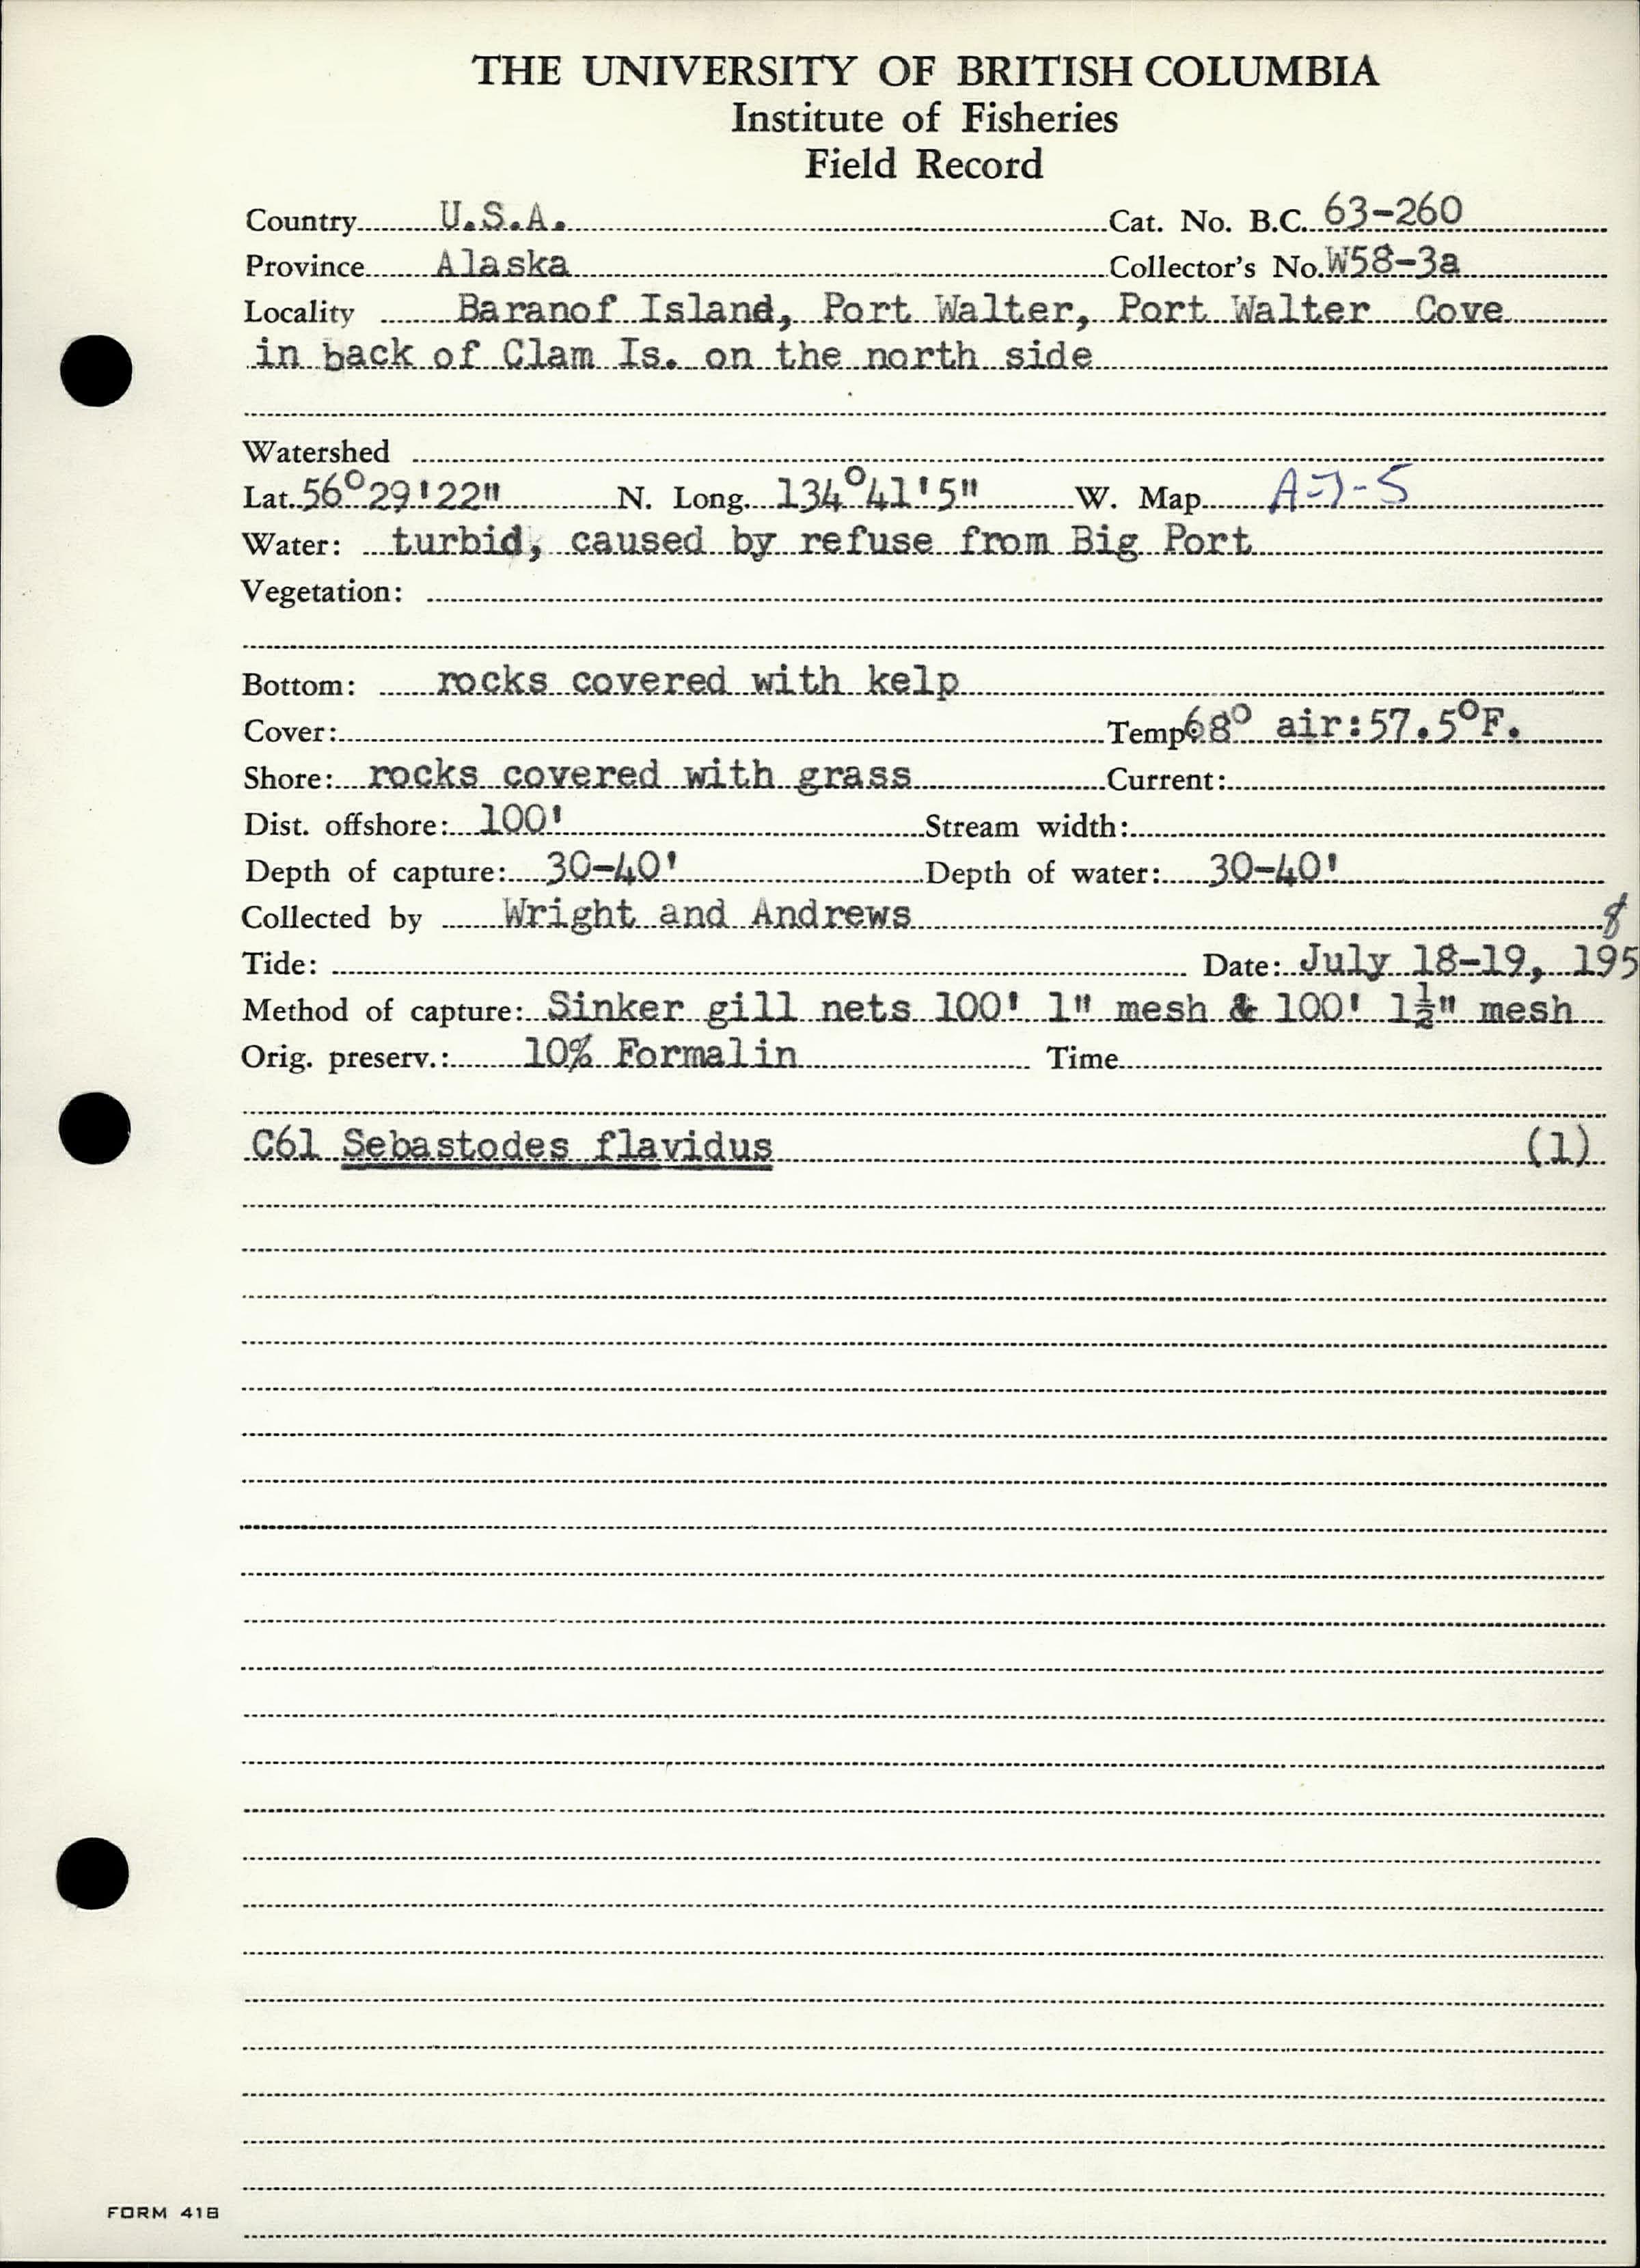 THE UNIVERSITY OF BRITISH COLUMBIA
Institute of Fisheries
Field Record
Country U.S.A. Cat. No. B.C. 63-260
Province Alaska Collector's No. W58-3a
Locality Baranof Island, Port Walter, Port Walter Cove
in back of Clam Is. on the north side
Watershed
Lat. 56°29'22" N. Long. 134°41'5" W. Map
Water: turbid, caused by refuse from Big Port
Vegetation:
Bottom: rocks covered with kelp
Cover: Temp: 68° air:57.5°F.
Shore: rocks covered with grass Current:
Dist. offshore: 100' Stream width:
Depth of capture: 30-40' Depth of water: 30-40'
Collected by Wright and Andrews
Tide: Date: July 18-19, 1958
Method of capture: Sinker gill nets 100' 1" mesh & 100' 1½" mesh
Orig. preserv.: 10% Formalin Time
C61 Sebastodes flavidus (1)
FORM 41B